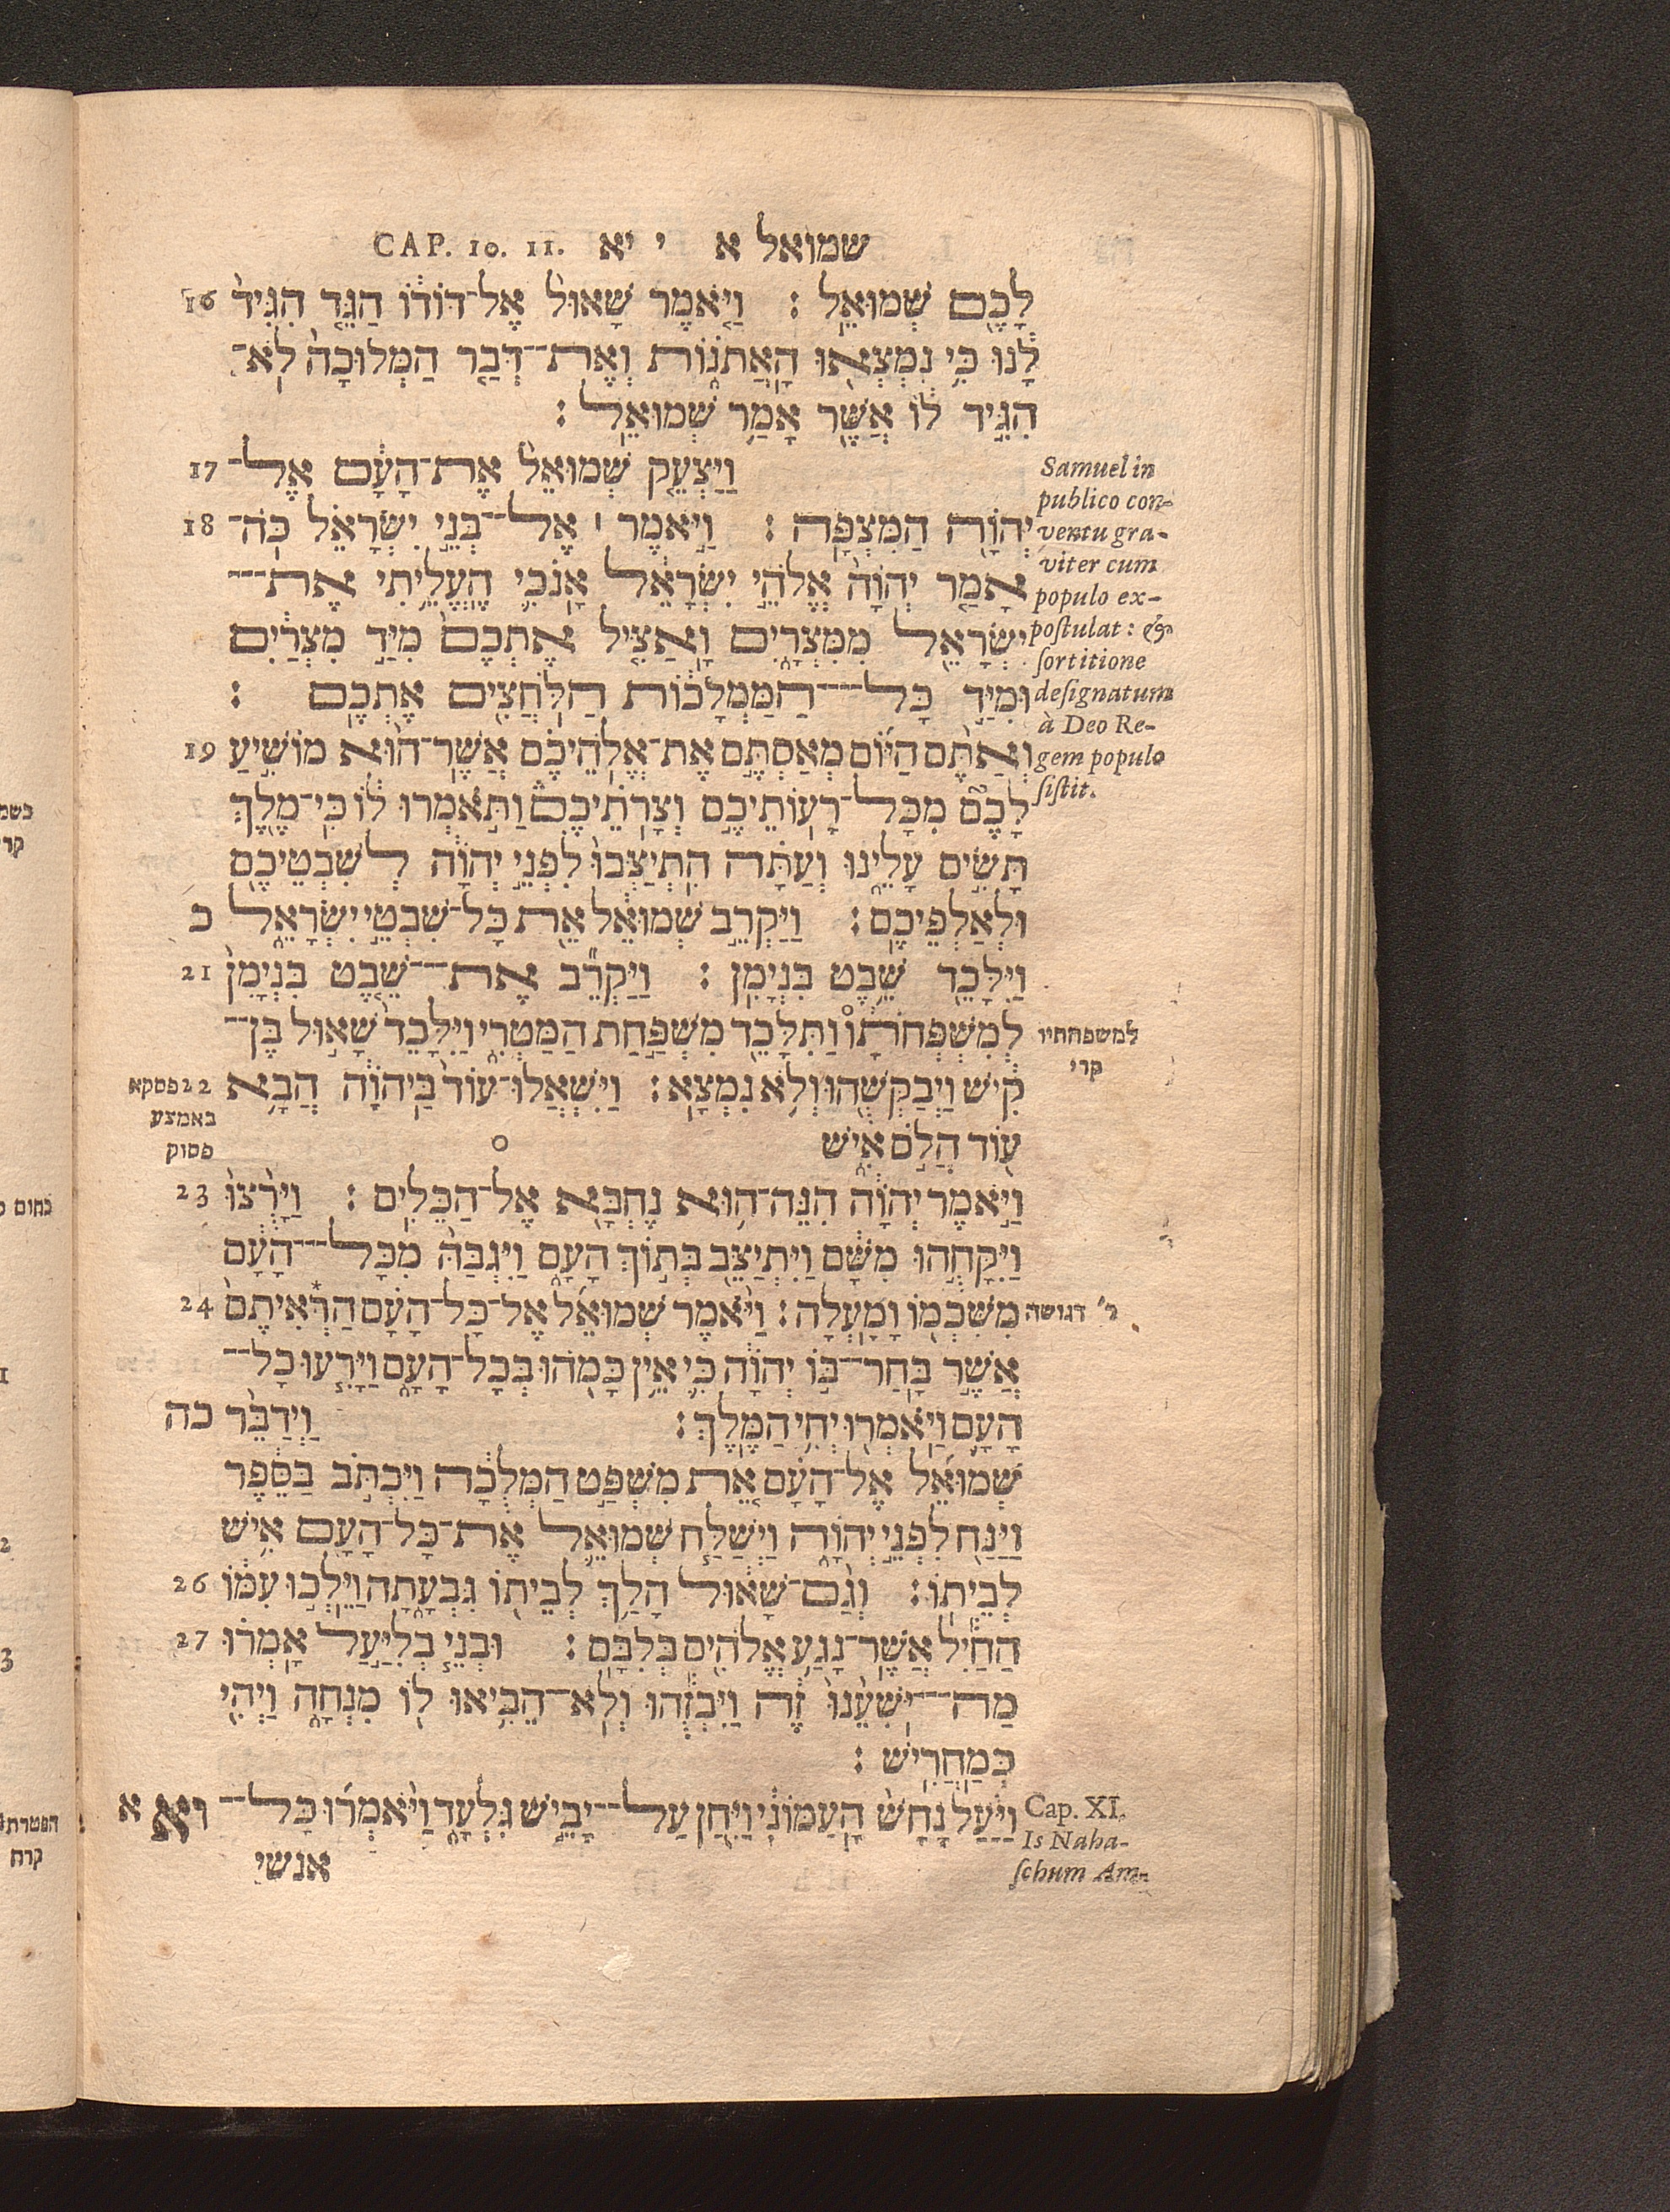 שמואל א י יא CAP. 10. 11.
לָכֶם שְׁמוּאֵל : וַיֹּאמֶר שָׁאוּל אֶל־דּוֹדוֹ הַגֵּד הִגִּיד 16
לָנוּ כִּי נִמְצְאוּ הָאֲתֹנוֹת וְאֶת־דְּבַר הַמְּלוּכָה לֹא־
הִגִּיד לוֹ אֲשֶׁר אָמַר שְׁמוּאֵל :
וַיַּצְעֵק שְׁמוּאֵל אֶת־הָעָם אֶל־ 17
יְהוָה הַמִּצְפָּה : וַיֹּאמֶר ׀ אֶל־בְּנֵי יִשְׂרָאֵל כֹּה־ 18
אָמַר יְהוָה אֱלֹהֵי יִשְׂרָאֵל אָנֹכִי הֶעֱלֵיתִי אֶת־
יִשְׂרָאֵל מִמִּצְרָיִם וָאַצִּיל אֶתְכֶם מִיַּד מִצְרַיִם
וּמִיַּד כָּל־הַמַּמְלָכוֹת הַלֹּחֲצִים אֶתְכֶם :
וְאַתֶּם הַיּוֹם מְאַסְתֶּם אֶת־אֱלֹהֵיכֶם אֲשֶׁר־הוּא מוֹשִׁיעַ 19
לָכֶם מִכָּל־רָעוֹתֵיכֶם וְצָרֹתֵיכֶם וַתֹּאמְרוּ לוֹ כִּי־מֶלֶךְ
תָּשִׂים עָלֵינוּ וְעַתָּה הִתְיַצְּבוּ לִפְנֵי יְהוָה לְשִׁבְטֵיכֶם
וּלְאַלְפֵיכֶם : וַיַּקְרֵב שְׁמוּאֵל אֵת כָּל־שִׁבְטֵי יִשְׂרָאֵל כ
וַיִּלָּכֵד שֵׁבֶט בִּנְיָמִן : וַיַּקְרֵב אֶת־שֵׁבֶט בִּנְיָמִן 21
לְמִשְׁפְּחֹתָו וַתִּלָּכֵד מִשְׁפַּחַת הַמַּטְרִי וַיִּלָּכֵד שָׁאוּל בֶּן־
קִישׁ וַיְבַקְשֻׁהוּ וְלֹא נִמְצָא : וַיִּשְׁאֲלוּ־עוֹד בַּיהוָה הֲבָא 22 פסקא
באמצע
עוֹד הֲלֹם אִישׁ ○ פסוק
וַיֹּאמֶר יְהוָה הִנֵּה־הוּא נֶחְבָּא אֶל־הַכֵּלִים : וַיָּרֻצוּ 23
וַיִּקָּחֻהוּ מִשָּׁם וַיִּתְיַצֵּב בְּתוֹךְ הָעָם וַיִּגְבַּהּ מִכָּל־הָעָם
מִשִּׁכְמוֹ וָמָעְלָה : וַיֹּאמֶר שְׁמוּאֵל אֶל־כָּל־הָעָם הַרְּאִיתֶם* 24
אֲשֶׁר בָּחַר־בּוֹ יְהוָה כִּי אֵין כָּמֹהוּ בְּכָל־הָעָם וַיָּרִעוּ כָל־
הָעָם וַיֹּאמְרוּ יְחִי הַמֶּלֶךְ : וַיְדַבֵּר כה
שְׁמוּאֵל אֶל־הָעָם אֵת מִשְׁפַּט הַמְּלֻכָה וַיִּכְתֹּב בַּסֵּפֶר
וַיַּנַּח לִפְנֵי יְהוָה וַיְשַׁלַּח שְׁמוּאֵל אֶת־כָּל־הָעָם אִישׁ
לְבֵיתוֹ : וְגַם־שָׁאוּל הָלַךְ לְבֵיתוֹ גִּבְעָתָה וַיֵּלְכוּ עִמּוֹ 26
הַחַיִל אֲשֶׁר־נָגַע אֱלֹהִים בְּלִבָּם : וּבְנֵי בְלִיַּעַל אָמְרוּ 27
מַה־יֹּשִׁעֵנוּ זֶה וַיִּבְזֻהוּ וְלֹא־הֵבִיאוּ לוֹ מִנְחָה וַיְהִי
כְּמַחֲרִישׁ :
וַיַּעַל נָחָשׁ הָעַמּוֹנִי וַיִּחַן עַל־יָבֵישׁ גִּלְעָד וַיֹּאמְרוּ כָּל־ יא א
אנשי
Samuel in
publico con-
ventu gra-
viter cum
populo ex-
postulat: &
sortitione
designatum
à Deo Re-
gem populo
sistit.
למשפחתיו
קרי
ר׳ דגושה
Cap. XI.
Is Naha-
schum Am-
קרי
הפטרת
קרח
2
3